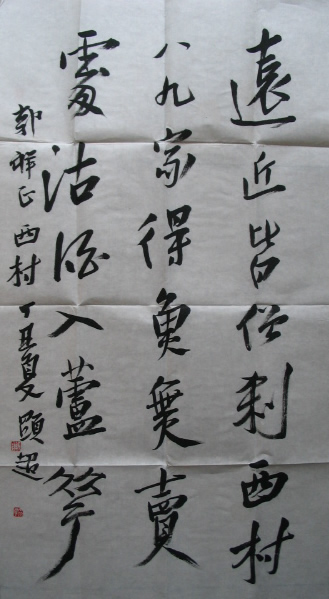 遠近皆僧刹西村
八九家得魚無賣
處沽酒入蘆花
郭祥正西村丁丑夏頤超